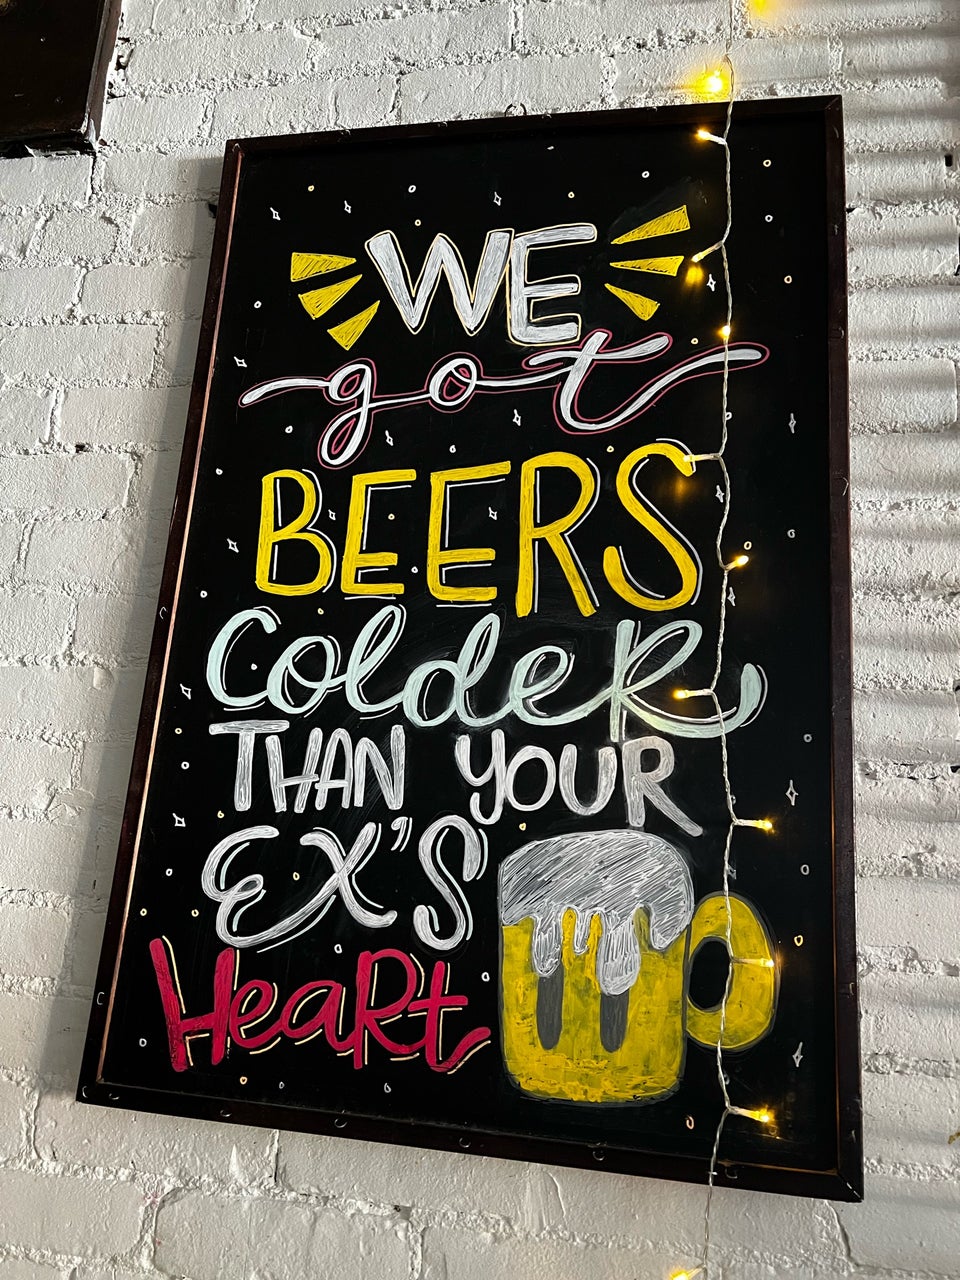 WE
got
BEERS
ColdeR
THAN YOUR
EX'S
HeaRt